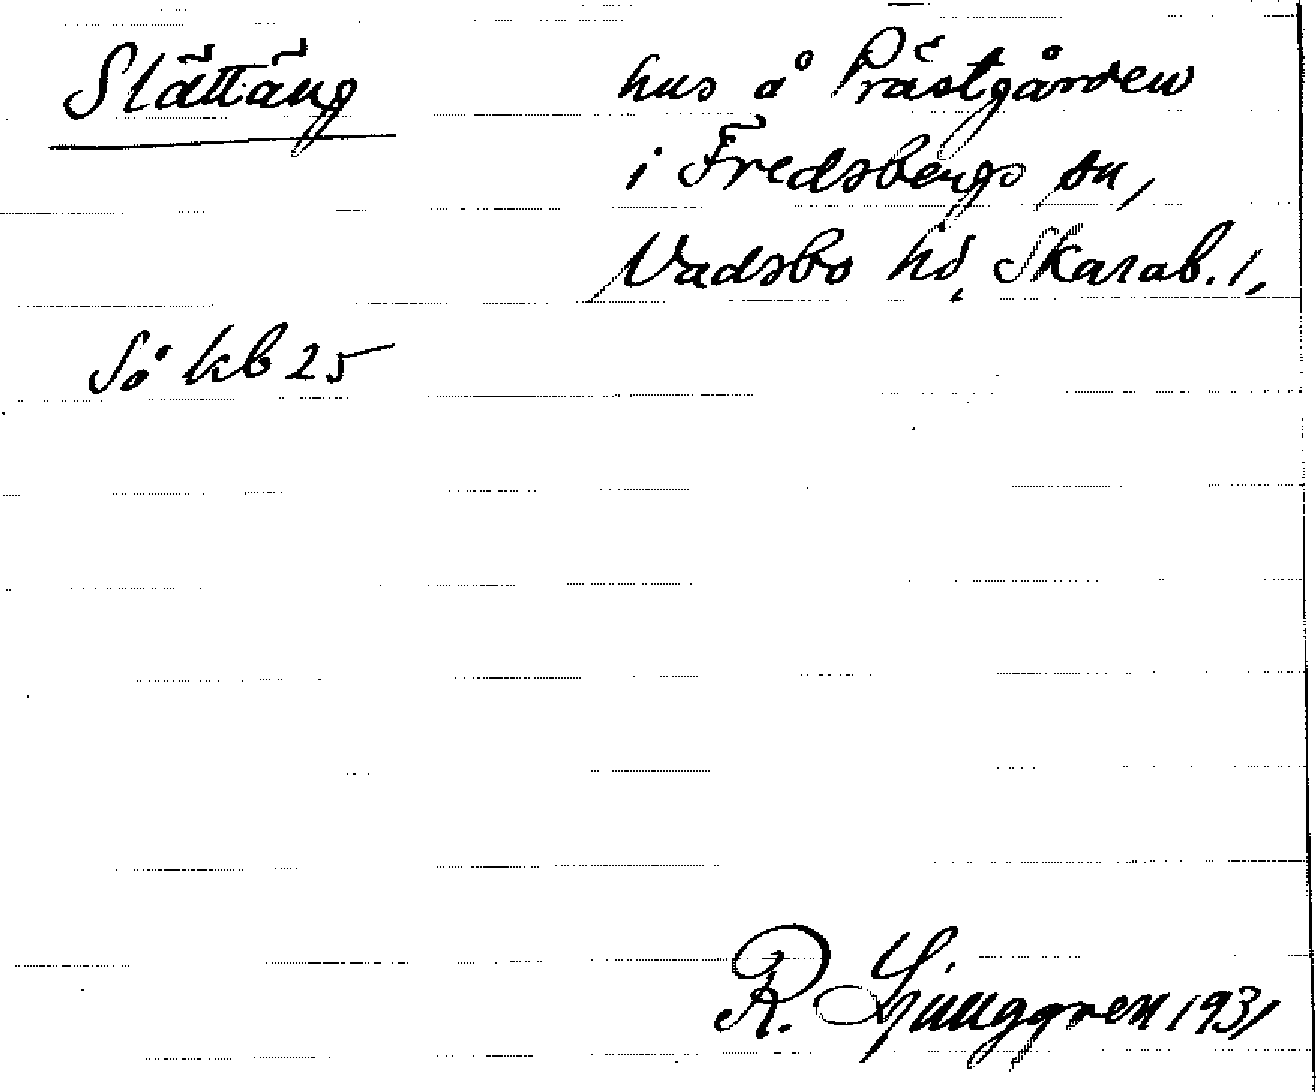 Slättäng
hus å Prästgården
i Fredsbergs sn,
Vadsbo hd, Skarab. l,
Så kb 25
R. Ljunggren 1931